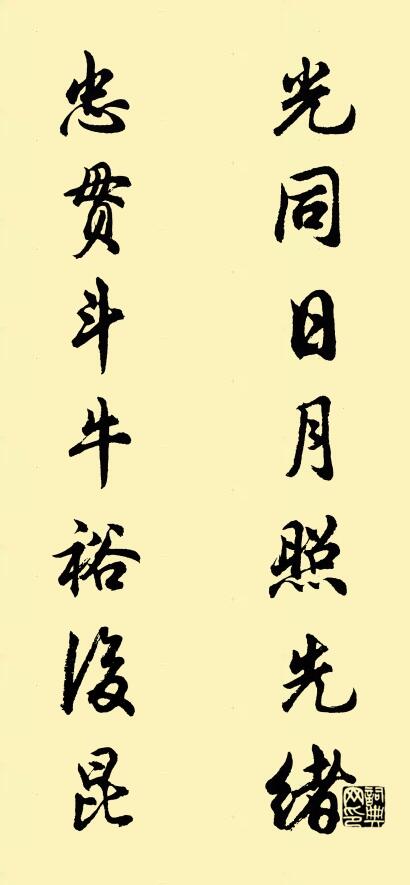 光同日月照先緒
忠贯斗牛裕後昆
詞典網印